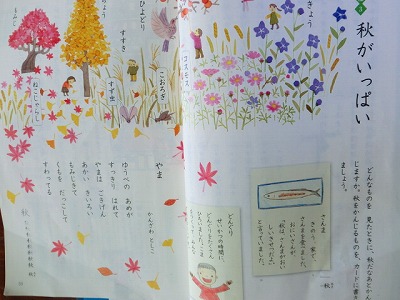 秋がいっぱい
どんなものを 見たときに、秋だなあとかん
じますか。秋をかんじるものを、カードに書き
ましょう。
さんま
きのう、家で、
さんまを食べました。
おじいさんが、
「秋は、さんまがおい
しいきせつだよ。」
と言っていました。
どんぐり
せいかつの時間に、
コスモス
こおろぎ
すず虫
すすき
ひよどり
もみじ
ねこじゃらし
やま
かんざわ としこ
ゆうべの あめが
すっきり はれて
やまは ごきげん
あかい きいろい
もみじきて
くもを だっこして
すわってる